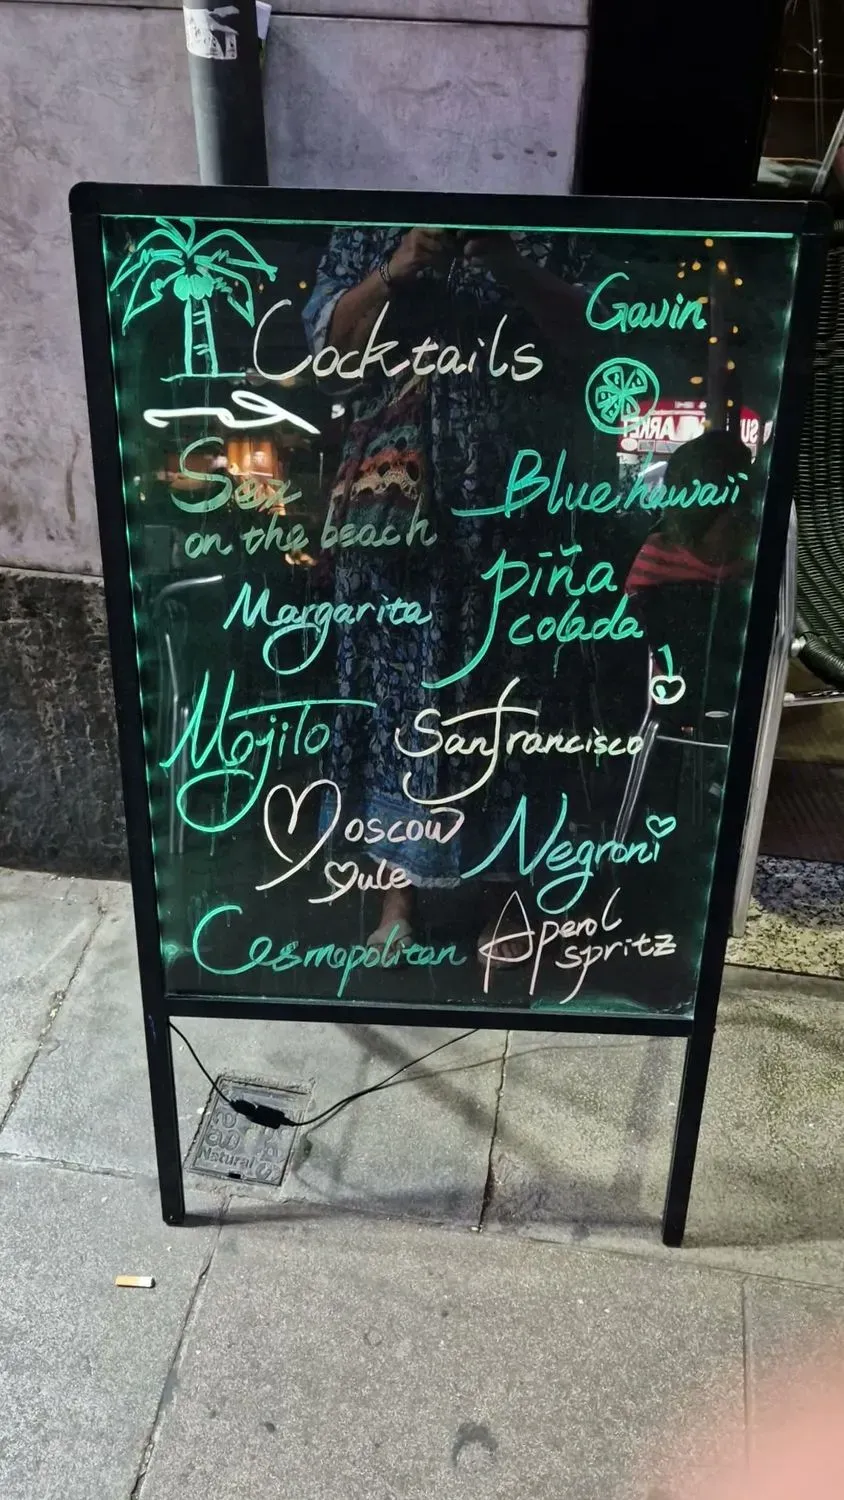 Gavin
Cocktails
Sex
on the beach
Blue hawaii
Margarita
piña
colada
Mojito
Sanfrancisco
Moscow
Mule
Negroni
Cosmopolitan
Aperol
spritz
Natural